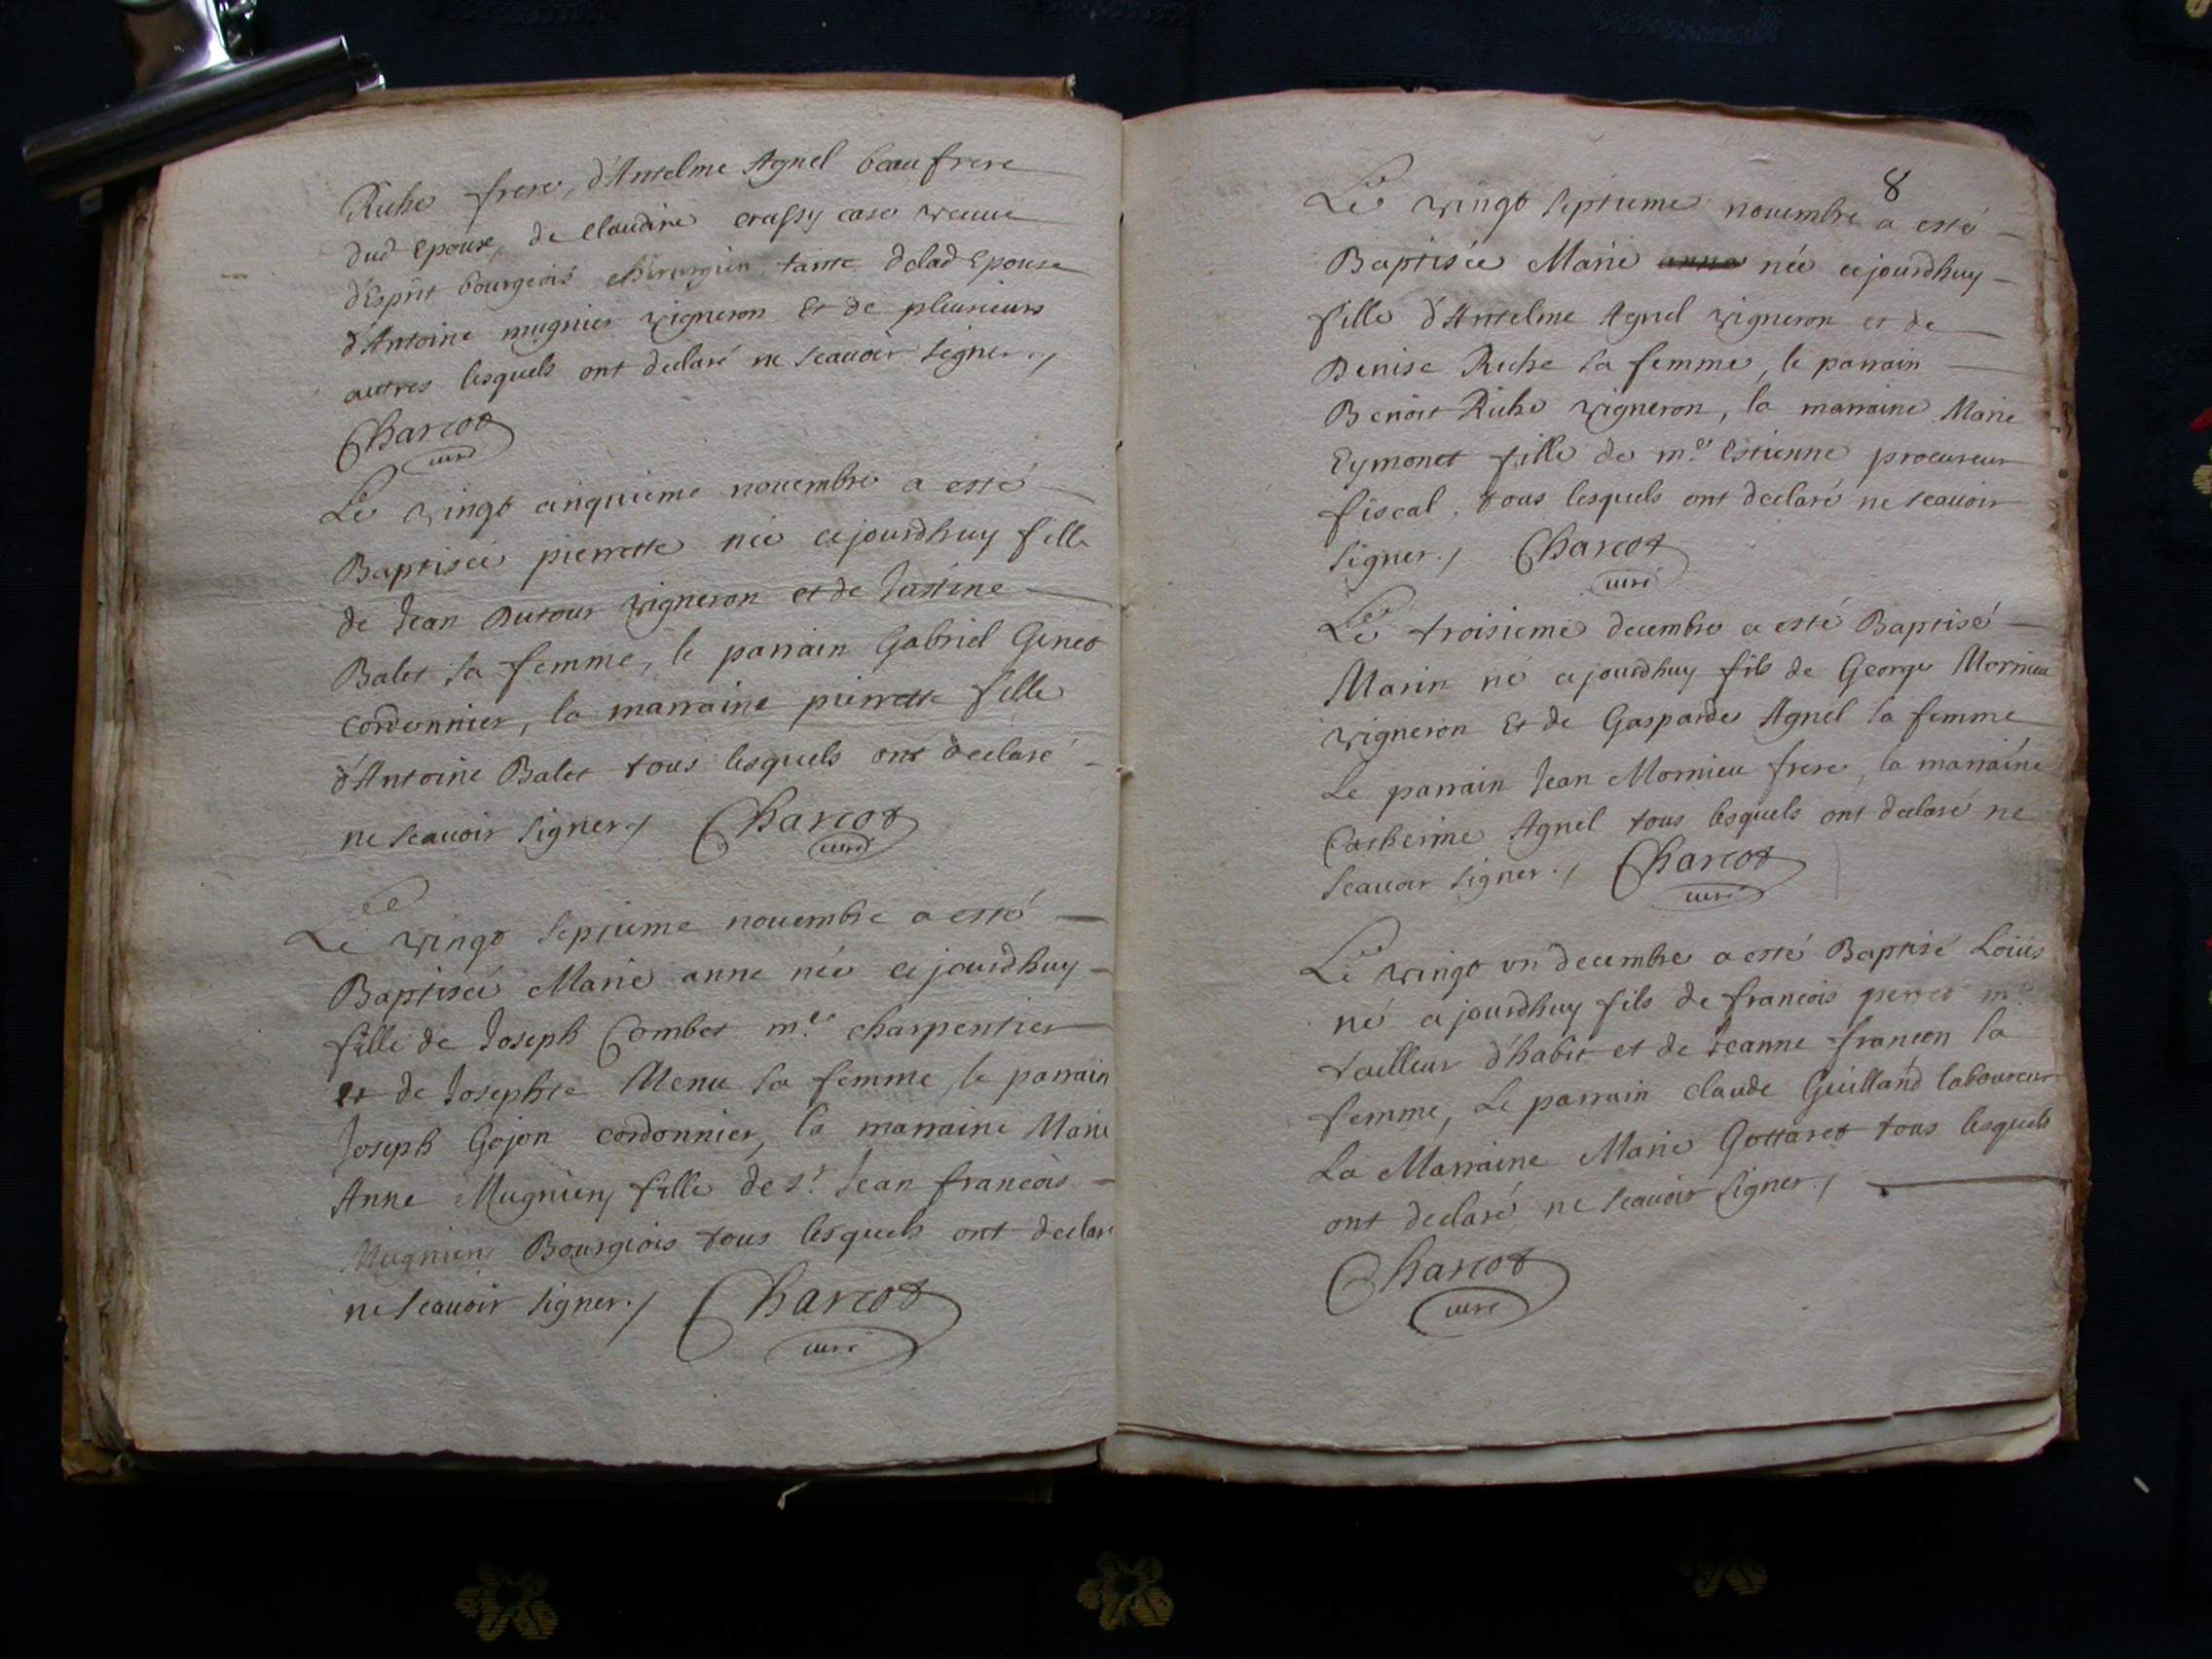 Riche frere, d'Antelme Agnel beaufrere
dud Epoux, de Claudine crassy veuve
d'Esprit bourgeois chirurgien tante delad Epouse
d'Antoine mugnier vigneron Et de plusieurs
autres lesquels ont declaré ne scauoir signer./
Charcot
curé
Le vingt cinquieme nouembre a esté
Baptisée pierrette née cejourdhuy fille
de Jean Dutour vigneron et de Justine
Balet sa femme, le parrain Gabriel Genet
cordonnier, la marraine pierrette fille
d'Antoine Balet tous lesquels ont declaré
ne scauoir signer./ Charcot
curé
Le vingt septieme nouembre a esté
Baptisée Marie anne née cejourdhuy
fille de Joseph Combet m.e charpentier
et de Josephte Menu sa femme, le parrain
Joseph Gojon cordonnier, la marraine Marie
Anne Mugnier, fille de s.r Jean francois
Mugnier Bourgeois tous lesquels ont declaré
ne scauoir signer./ Charcot
curé
8
Le vingt septieme nouembre a esté
Baptisée Marie anne née cejourdhuy
fille d'Antelme Agnel vigneron et de
Denise Riche sa femme, le parrain
Benoit Riche vigneron, la marraine Marie
Eymonet fille de m.e Estienne procureur
fiscal, tous lesquels ont declaré ne scauoir
signer./ Charcot
curé
Le troisieme decembre a esté Baptisé
Marin né cejourdhuy fils de George Mornieu
vigneron Et de Gasparde Agnel sa femme
Le parrain Jean Mornieu frere, la marraine
Catherine Agnel tous lesquels ont declaré ne
scauoir signer./ Charcot
curé
Le vingt vn decembre a esté Baptisé Loüis
né cejourdhuy fils de francois perret m.e
tailleur d'habit et de Jeanne francon sa
femme, Le parrain claude Guilland laboureur
La Marraine Marie Gottaret tous lesquels
ont declaré ne scauoir signer./
Charcot
curé